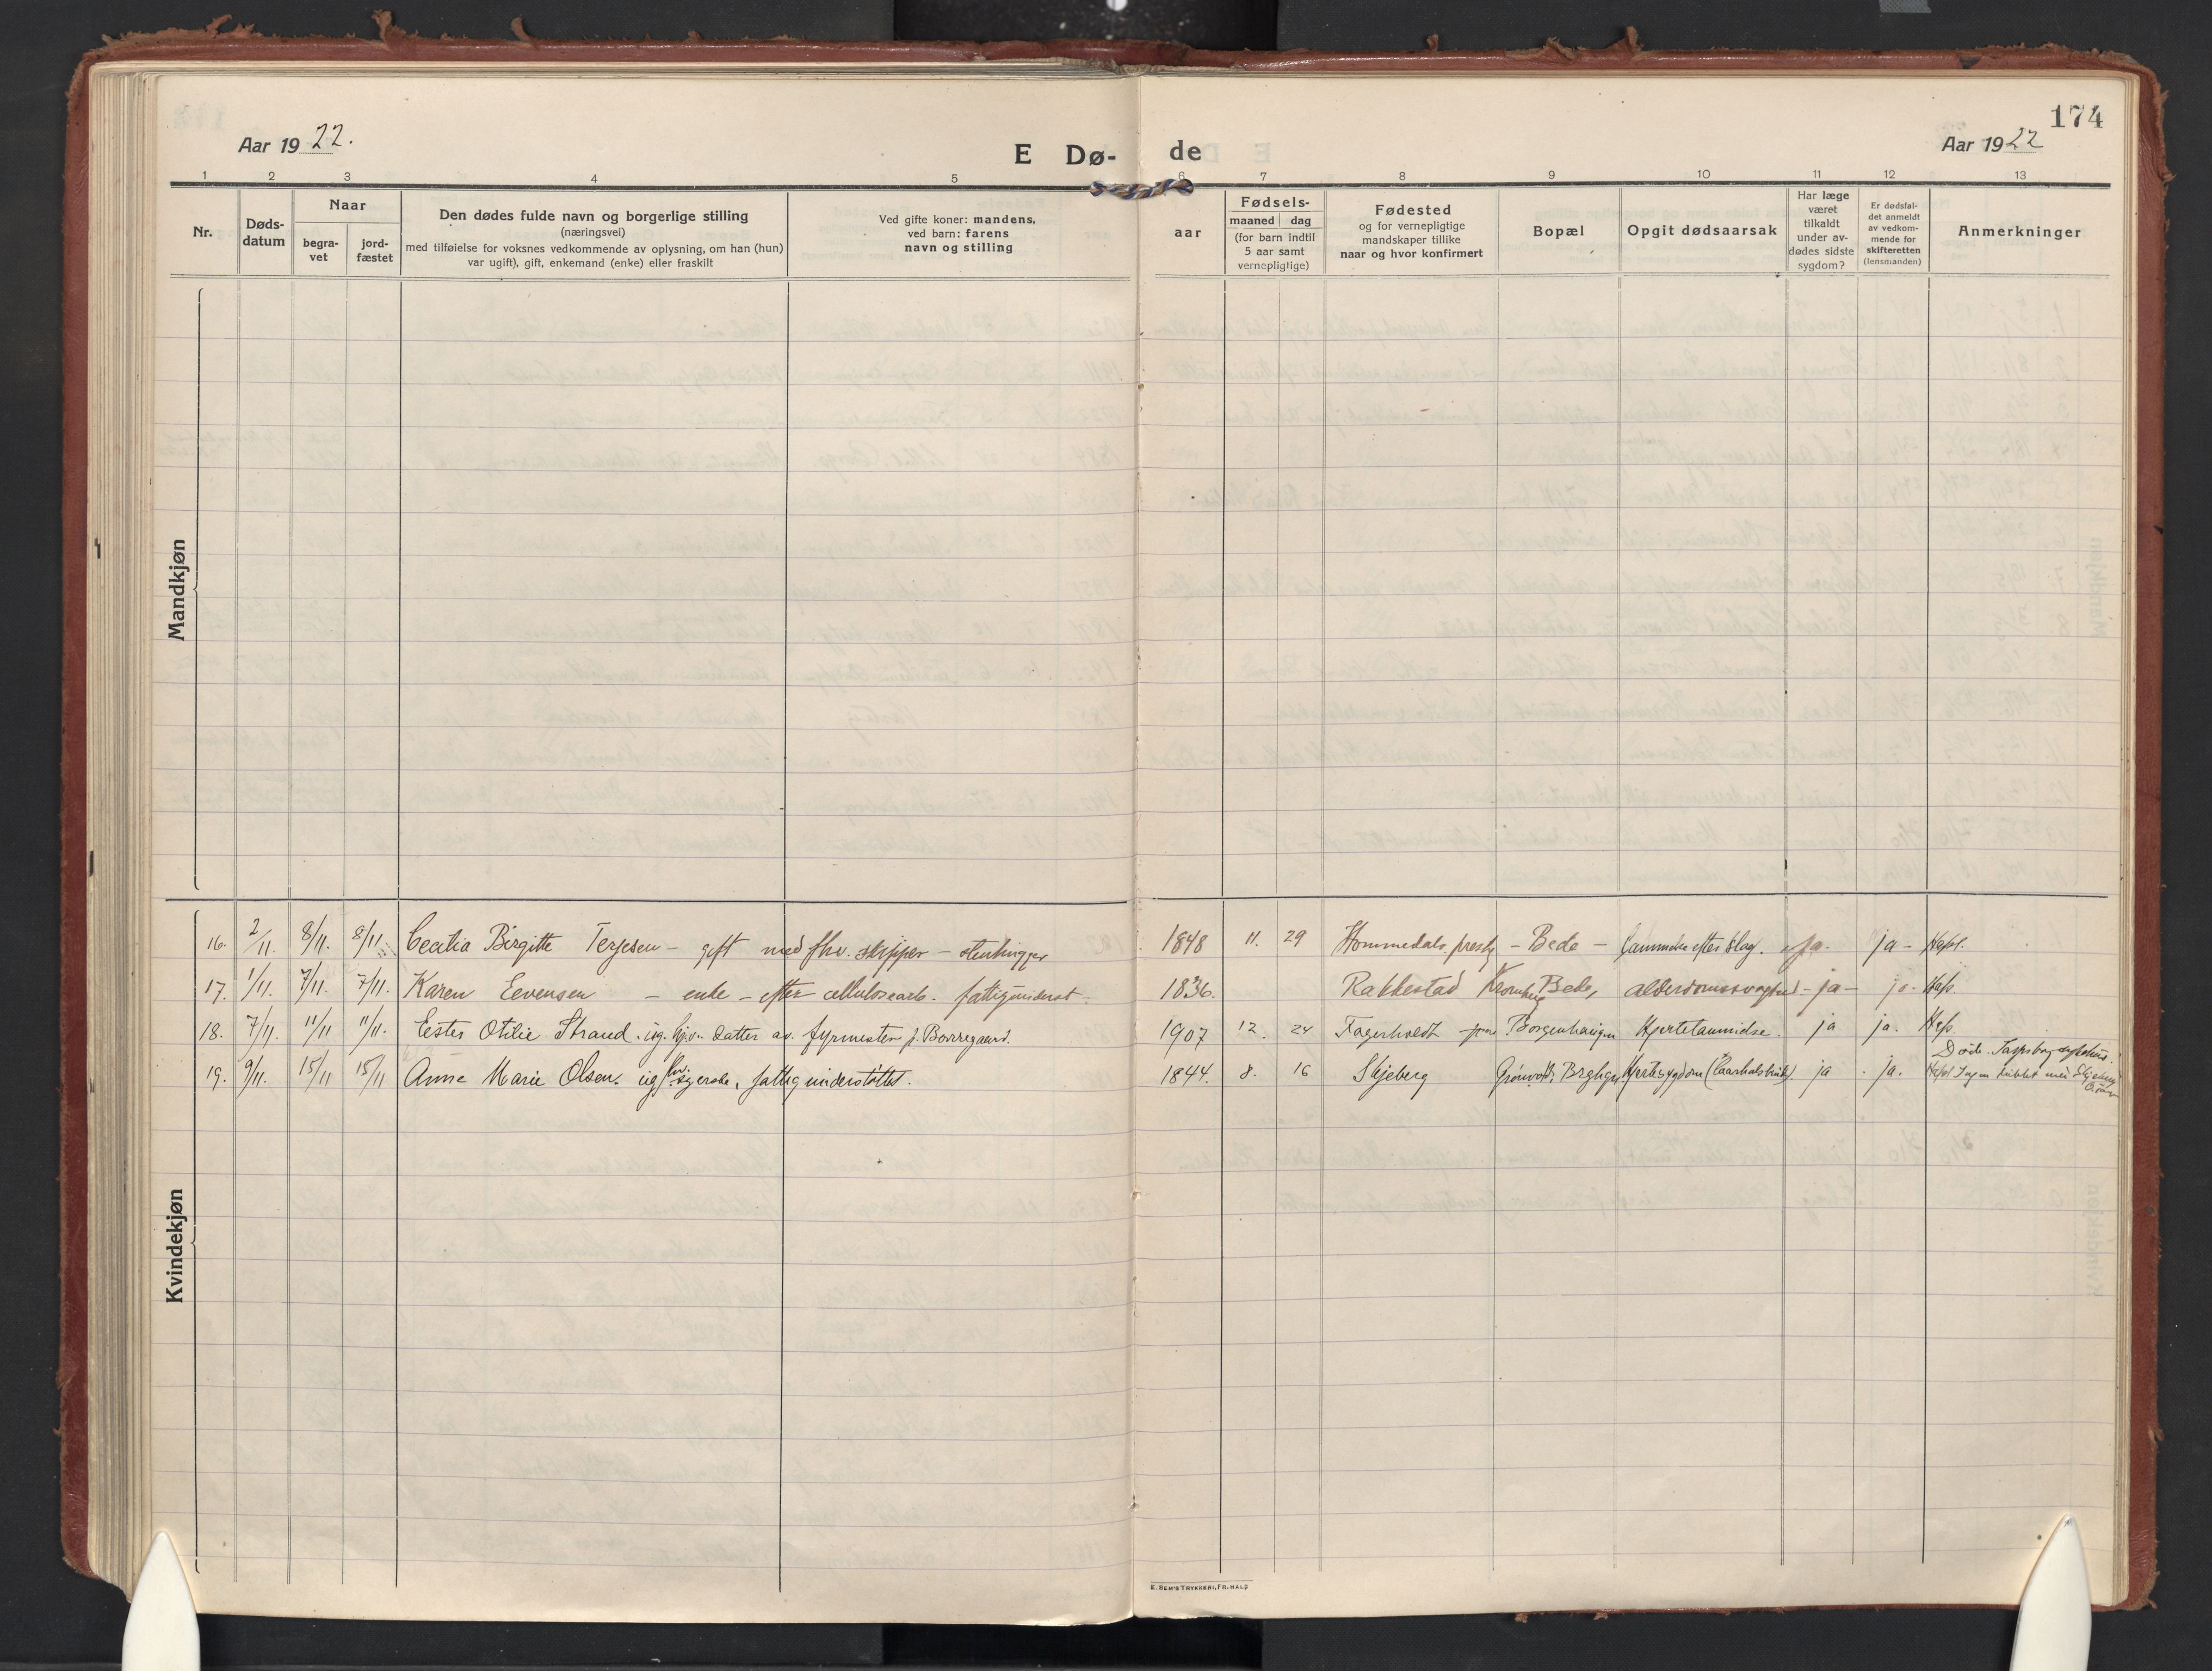 174
Aar 1922.
E Dø- de
Aar 1922
1 2 3 4 5 6 7 8 9 10 11 12 13
Nr.
Døds-
datum
Naar
begra-
vet
jord-
fæstet
Den dødes fulde navn og borgerlige stilling
(næringsvei)
med tilføielse for voksnes vedkommende av oplysning, om han (hun)
var ugift), gift, enkemand (enke) eller fraskilt
Ved gifte koner: mandens,
ved barn: farens
navn og stilling
aar
Fødsels-
maaned dag
(for barn indtil
5 aar samt
vernepligtige)
Fødested
og for vernepligtige
mandskaper tillike
naar og hvor konfirmert
Bopæl
Opgit dødsaarsak
Har læge
været
tilkaldt
under av-
dødes sidste
sygdom?
Er dødsfal-
det anmeldt
av vedkom-
mende for
skifteretten
(lensmanden)
Anmerkninger
Mandkjøn
Kvindekjøn
16. 2/11. 8/11. 8/11 Cecilia Birgitte Terjesen - gift med fhv. skipper - stenhugger 1848 11. 29 Hommedals prestg - Bede - efter slag. ja. ja -
17. 1/11. 7/11. 7/11. Karen Evensen - enke - efter cellulosearb. fattigunderst. 1836. Rakkestad Bede, alderdomssvaghed - ja - ja.
18. 7/11. 11/11 11/11. Ester Otilie Strand. ug. hjv. datter av fyrmester p. Borregaard. 1907 12. 24 Fagerholdt Borgenhaugen Hjertelammelse. ja ja.
19. 9/11. 15/11 15/11 Anne Marie Olsen. ug. fhv. syerske, fattigunderstøttet. 1844. 8. 16 Skjeberg Hjertesygdom ja ja. Døde
E. SEM'S TRYKKERI, FR.HALD